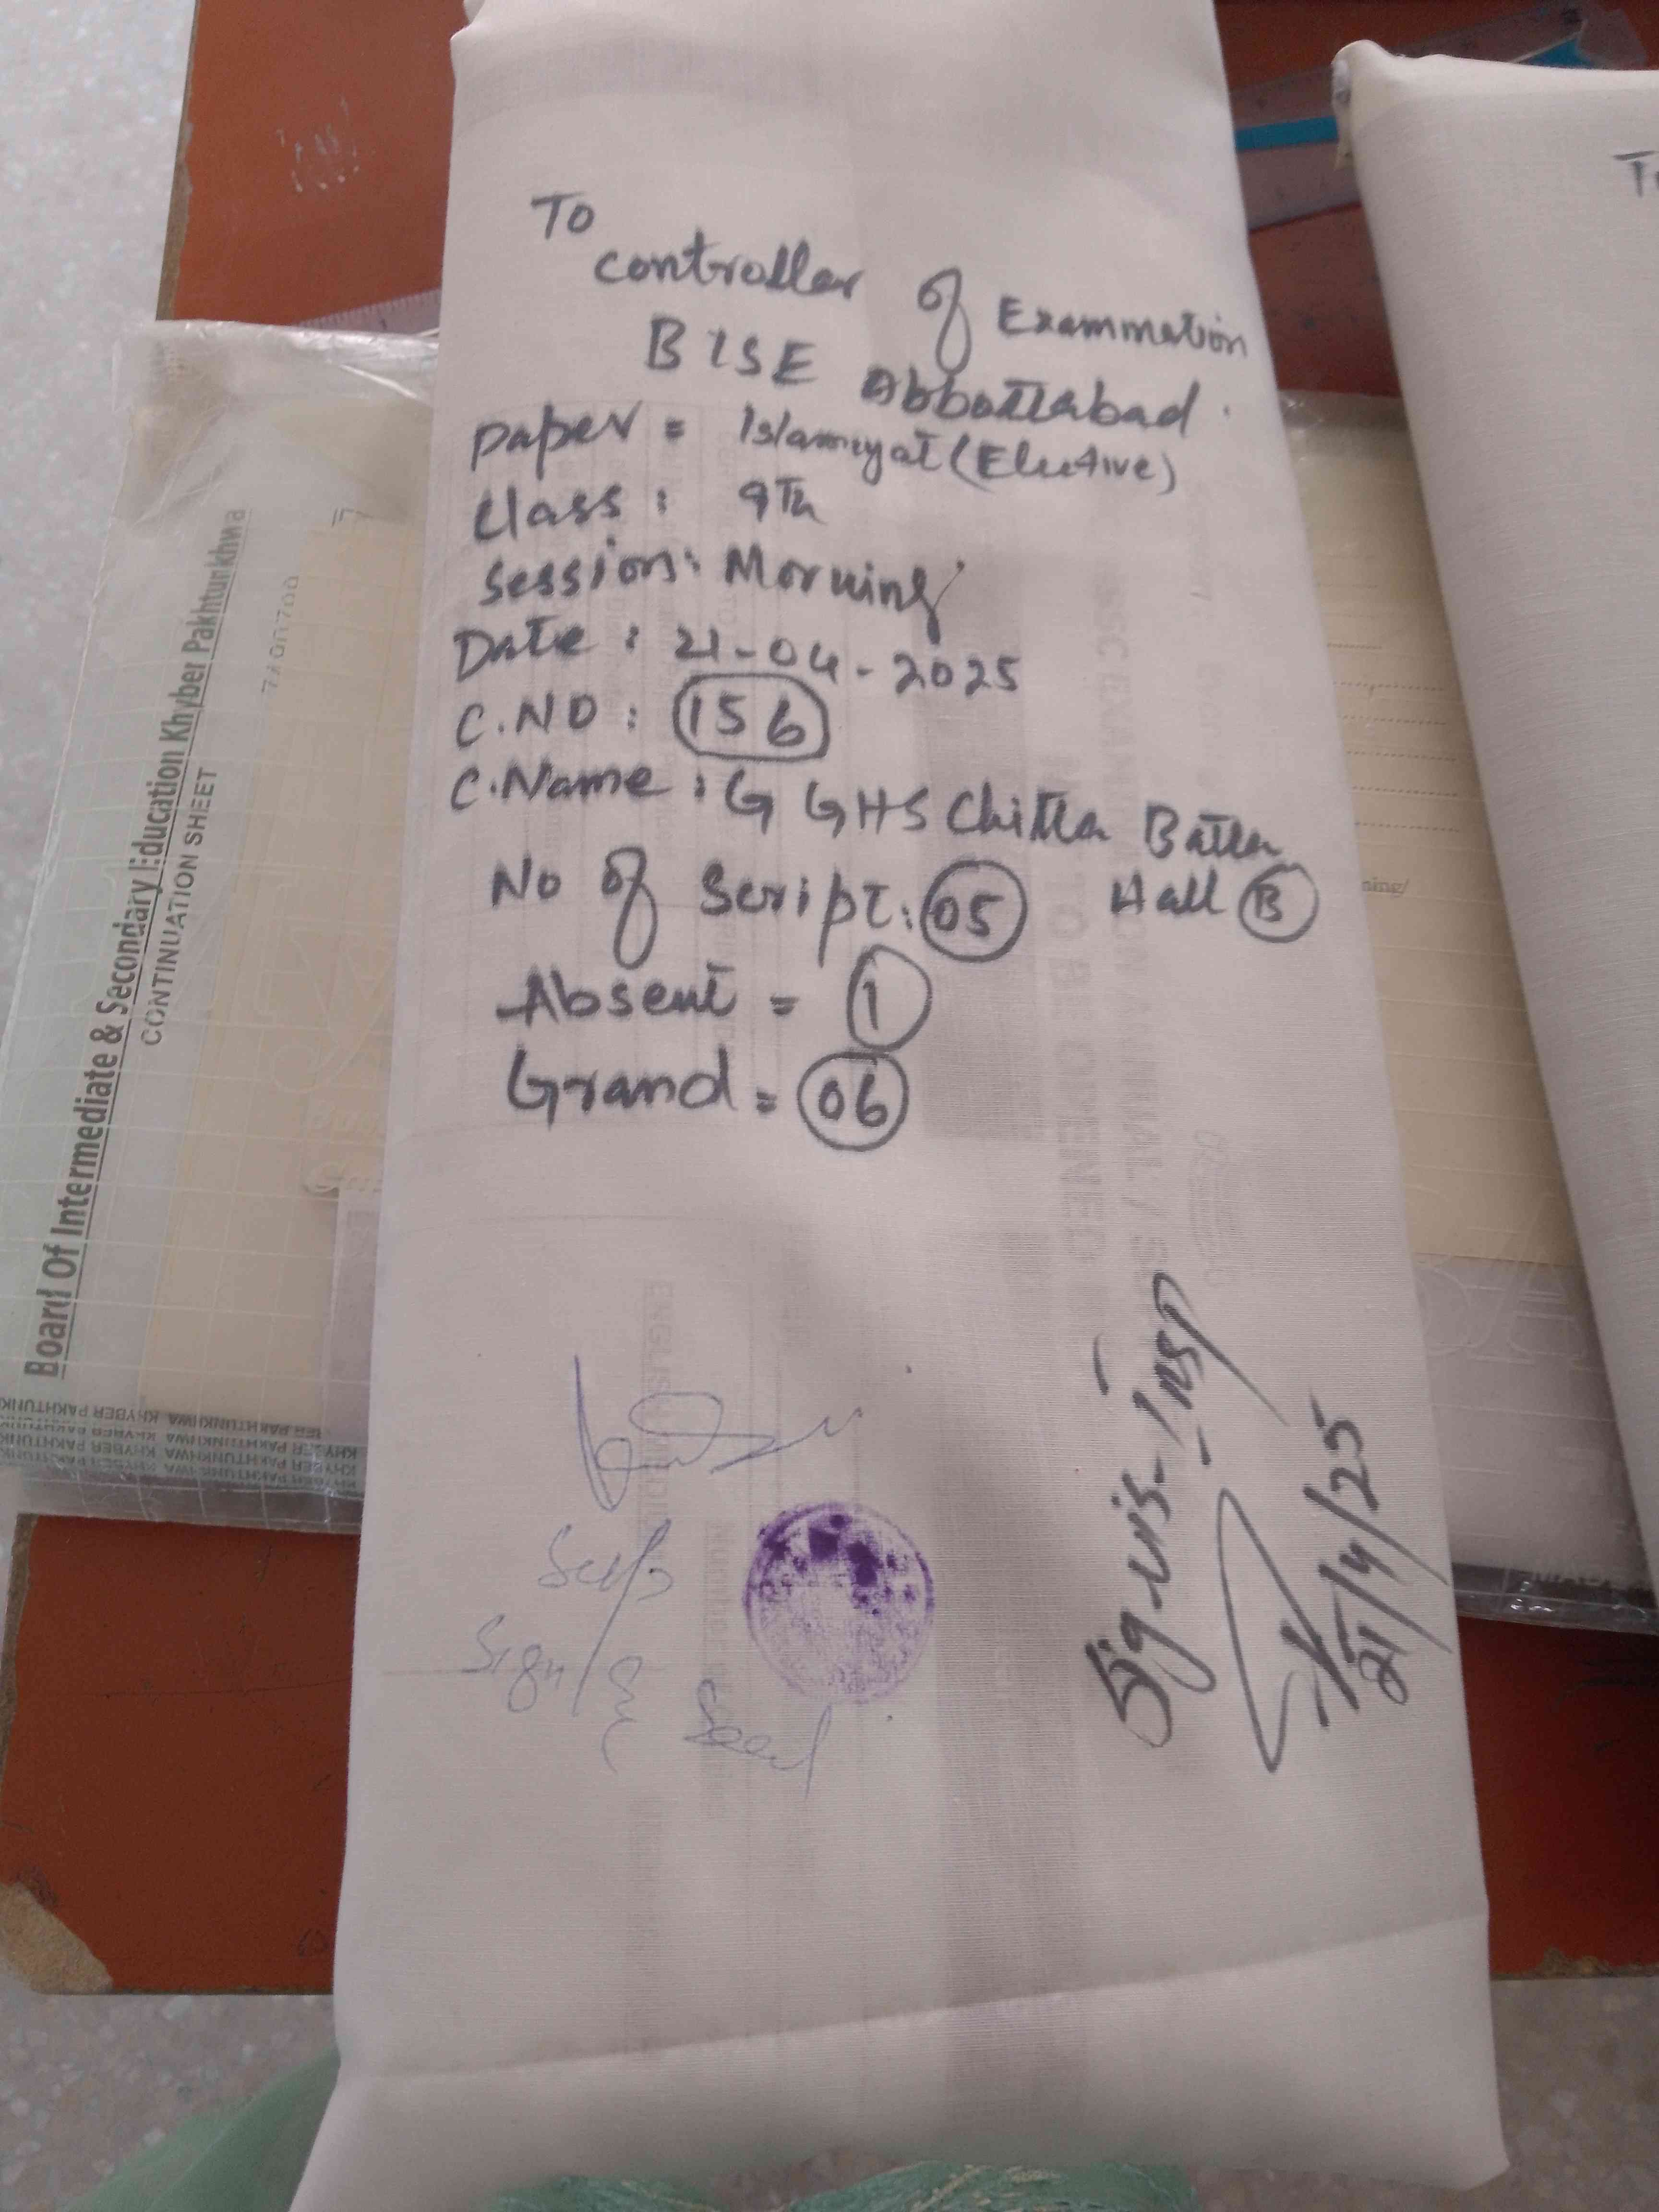 To
controller of Exammation
BISE Abbottabad.
paper = Islameyat (Elective)
class: 9Th
Session: Morning
Date: 21-04-2025
C.NO: 156
C.Name: G GHS Chitta Batta
No of Script: 05 Hall B
Absent = 1
Grand = 06
Sig vis-Insp
21/4/25
Sign
Seal
Board Of Intermediate & Secondary Education Khyber Pakhtunkhwa
CONTINUATION SHEET
KHYBER PAKHTUNKHWA